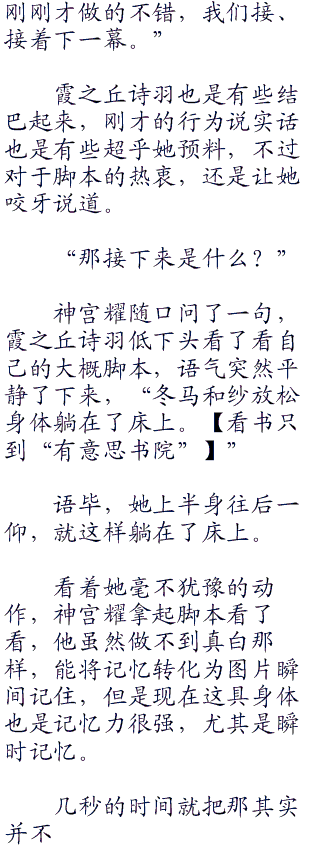 刚刚才做的不错，我们接、
接着下一幕。”
霞之丘诗羽也是有些结
巴起来，刚才的行为说实话
也是有些超乎她预料，不过
对于脚本的热衷，还是让她
咬牙说道。
“那接下来是什么？”
神宫耀随口问了一句，
霞之丘诗羽低下头看了看自
己的大概脚本，语气突然平
静了下来，“冬马和纱放松
身体躺在了床上。【看书只
到“有意思书院”】”
语毕，她上半身往后一
仰，就这样躺在了床上。
看着她毫不犹豫的动
作，神宫耀拿起脚本看了
看，他虽然做不到真白那
样，能将记忆转化为图片瞬
间记住，但是现在这具身体
也是记忆力很强，尤其是瞬
时记忆。
几秒的时间就把那其实
并不